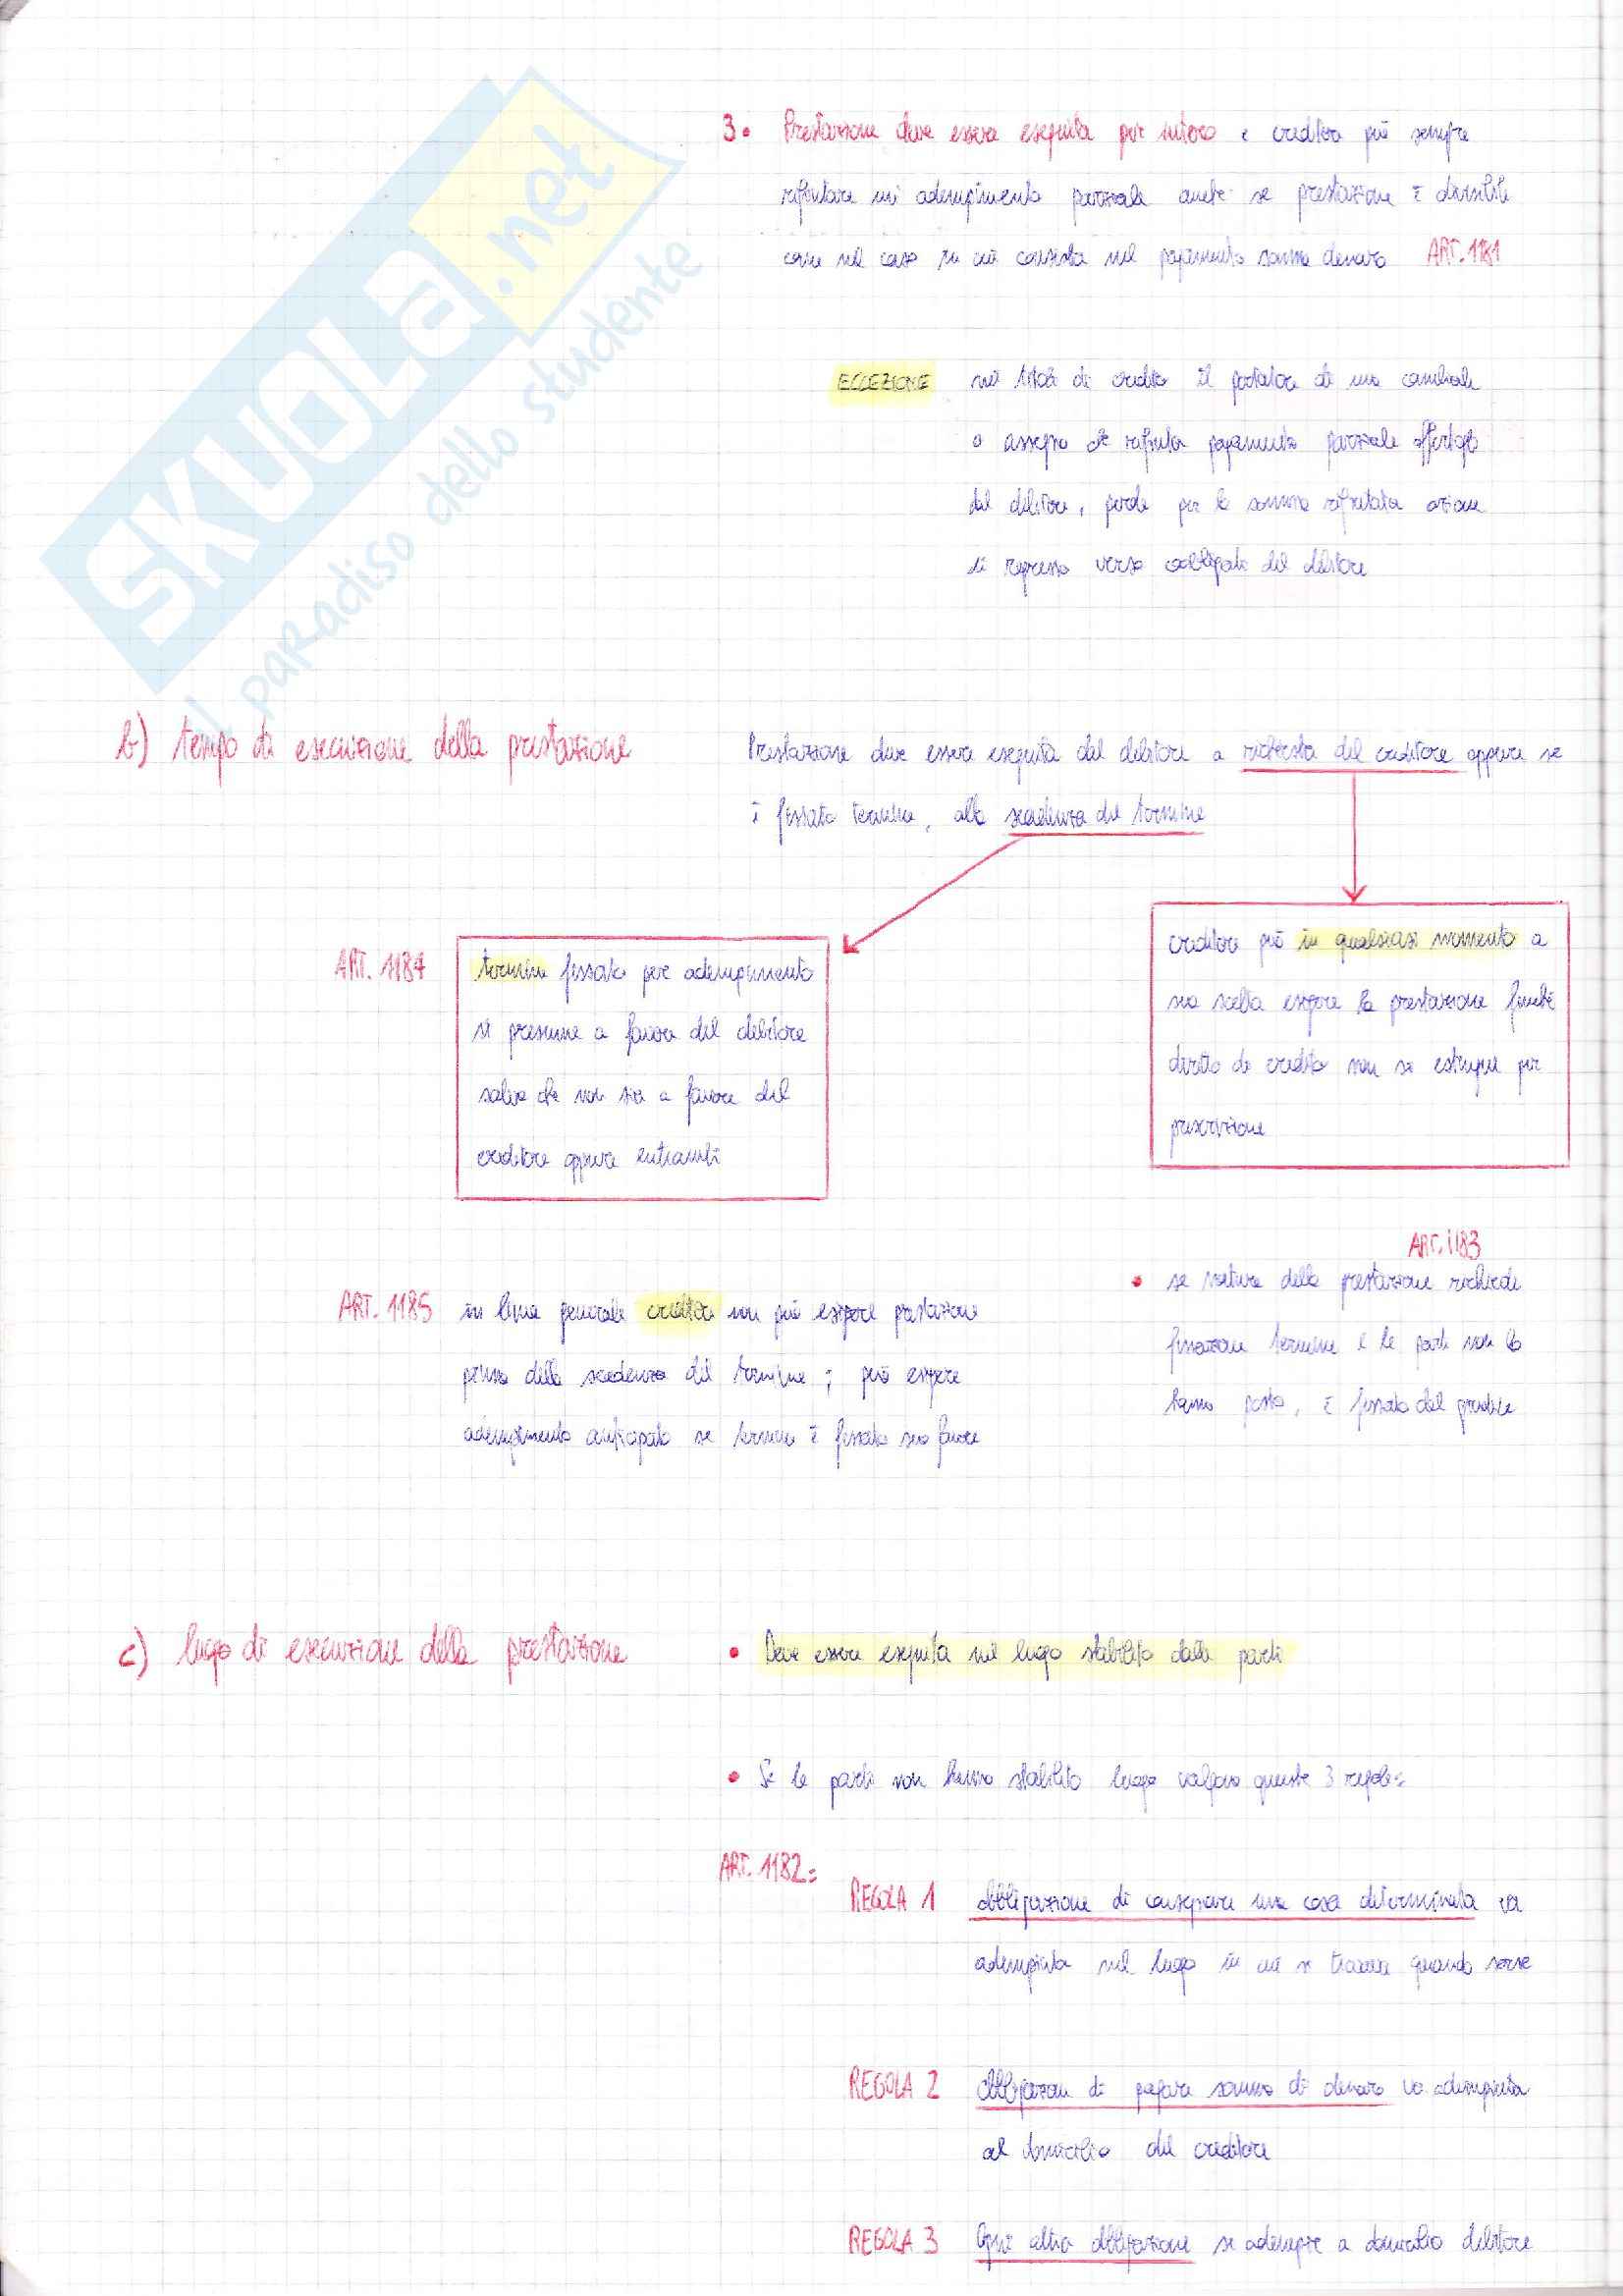 SKUOLA.net
il paradiso dello studente
3. Prestazione deve essere eseguita per intero e creditore può sempre
rifiutare un adempimento parziale anche se prestazione è divisibile
come nel caso in cui consista nel pagamento somma denaro ART. 1181
ECCEZIONE nei titoli di credito il portatore di una cambiale
o assegno che rifiuta pagamento parziale offertogli
dal debitore, perde per la somma rifiutata azione
di regresso verso obbligato del debitore
b) tempo di esecuzione della prestazione
Prestazione deve essere eseguita dal debitore a richiesta del creditore oppure se
è fissato termine, alla scadenza del termine
ART. 1184
termine fissato per adempimento
si presume a favore del debitore
salvo che non sia a favore del
creditore oppure entrambi
creditore può in qualsiasi momento a
sua scelta esigere la prestazione finché
diritto di credito non si estingue per
prescrizione
ART. 1183
• se natura della prestazione richiede
fissazione termine e le parti non lo
hanno posto, è fissato dal giudice
ART. 1185 in linea generale creditore non può esigere prestazione
prima della scadenza del termine; può esigere
adempimento anticipato se termine è fissato suo favore
c) luogo di esecuzione della prestazione
• Deve essere eseguita nel luogo stabilito dalle parti
• Se le parti non hanno stabilito luogo valgono queste 3 regole:
ART. 1182:
REGOLA 1 obbligazione di consegnare una cosa determinata va
adempiuta nel luogo in cui si trovava quando sorse
REGOLA 2 obbligazioni di pagare somma di denaro va adempiuta
al domicilio del creditore
REGOLA 3 Ogni altra obbligazione si adempie a domicilio debitore